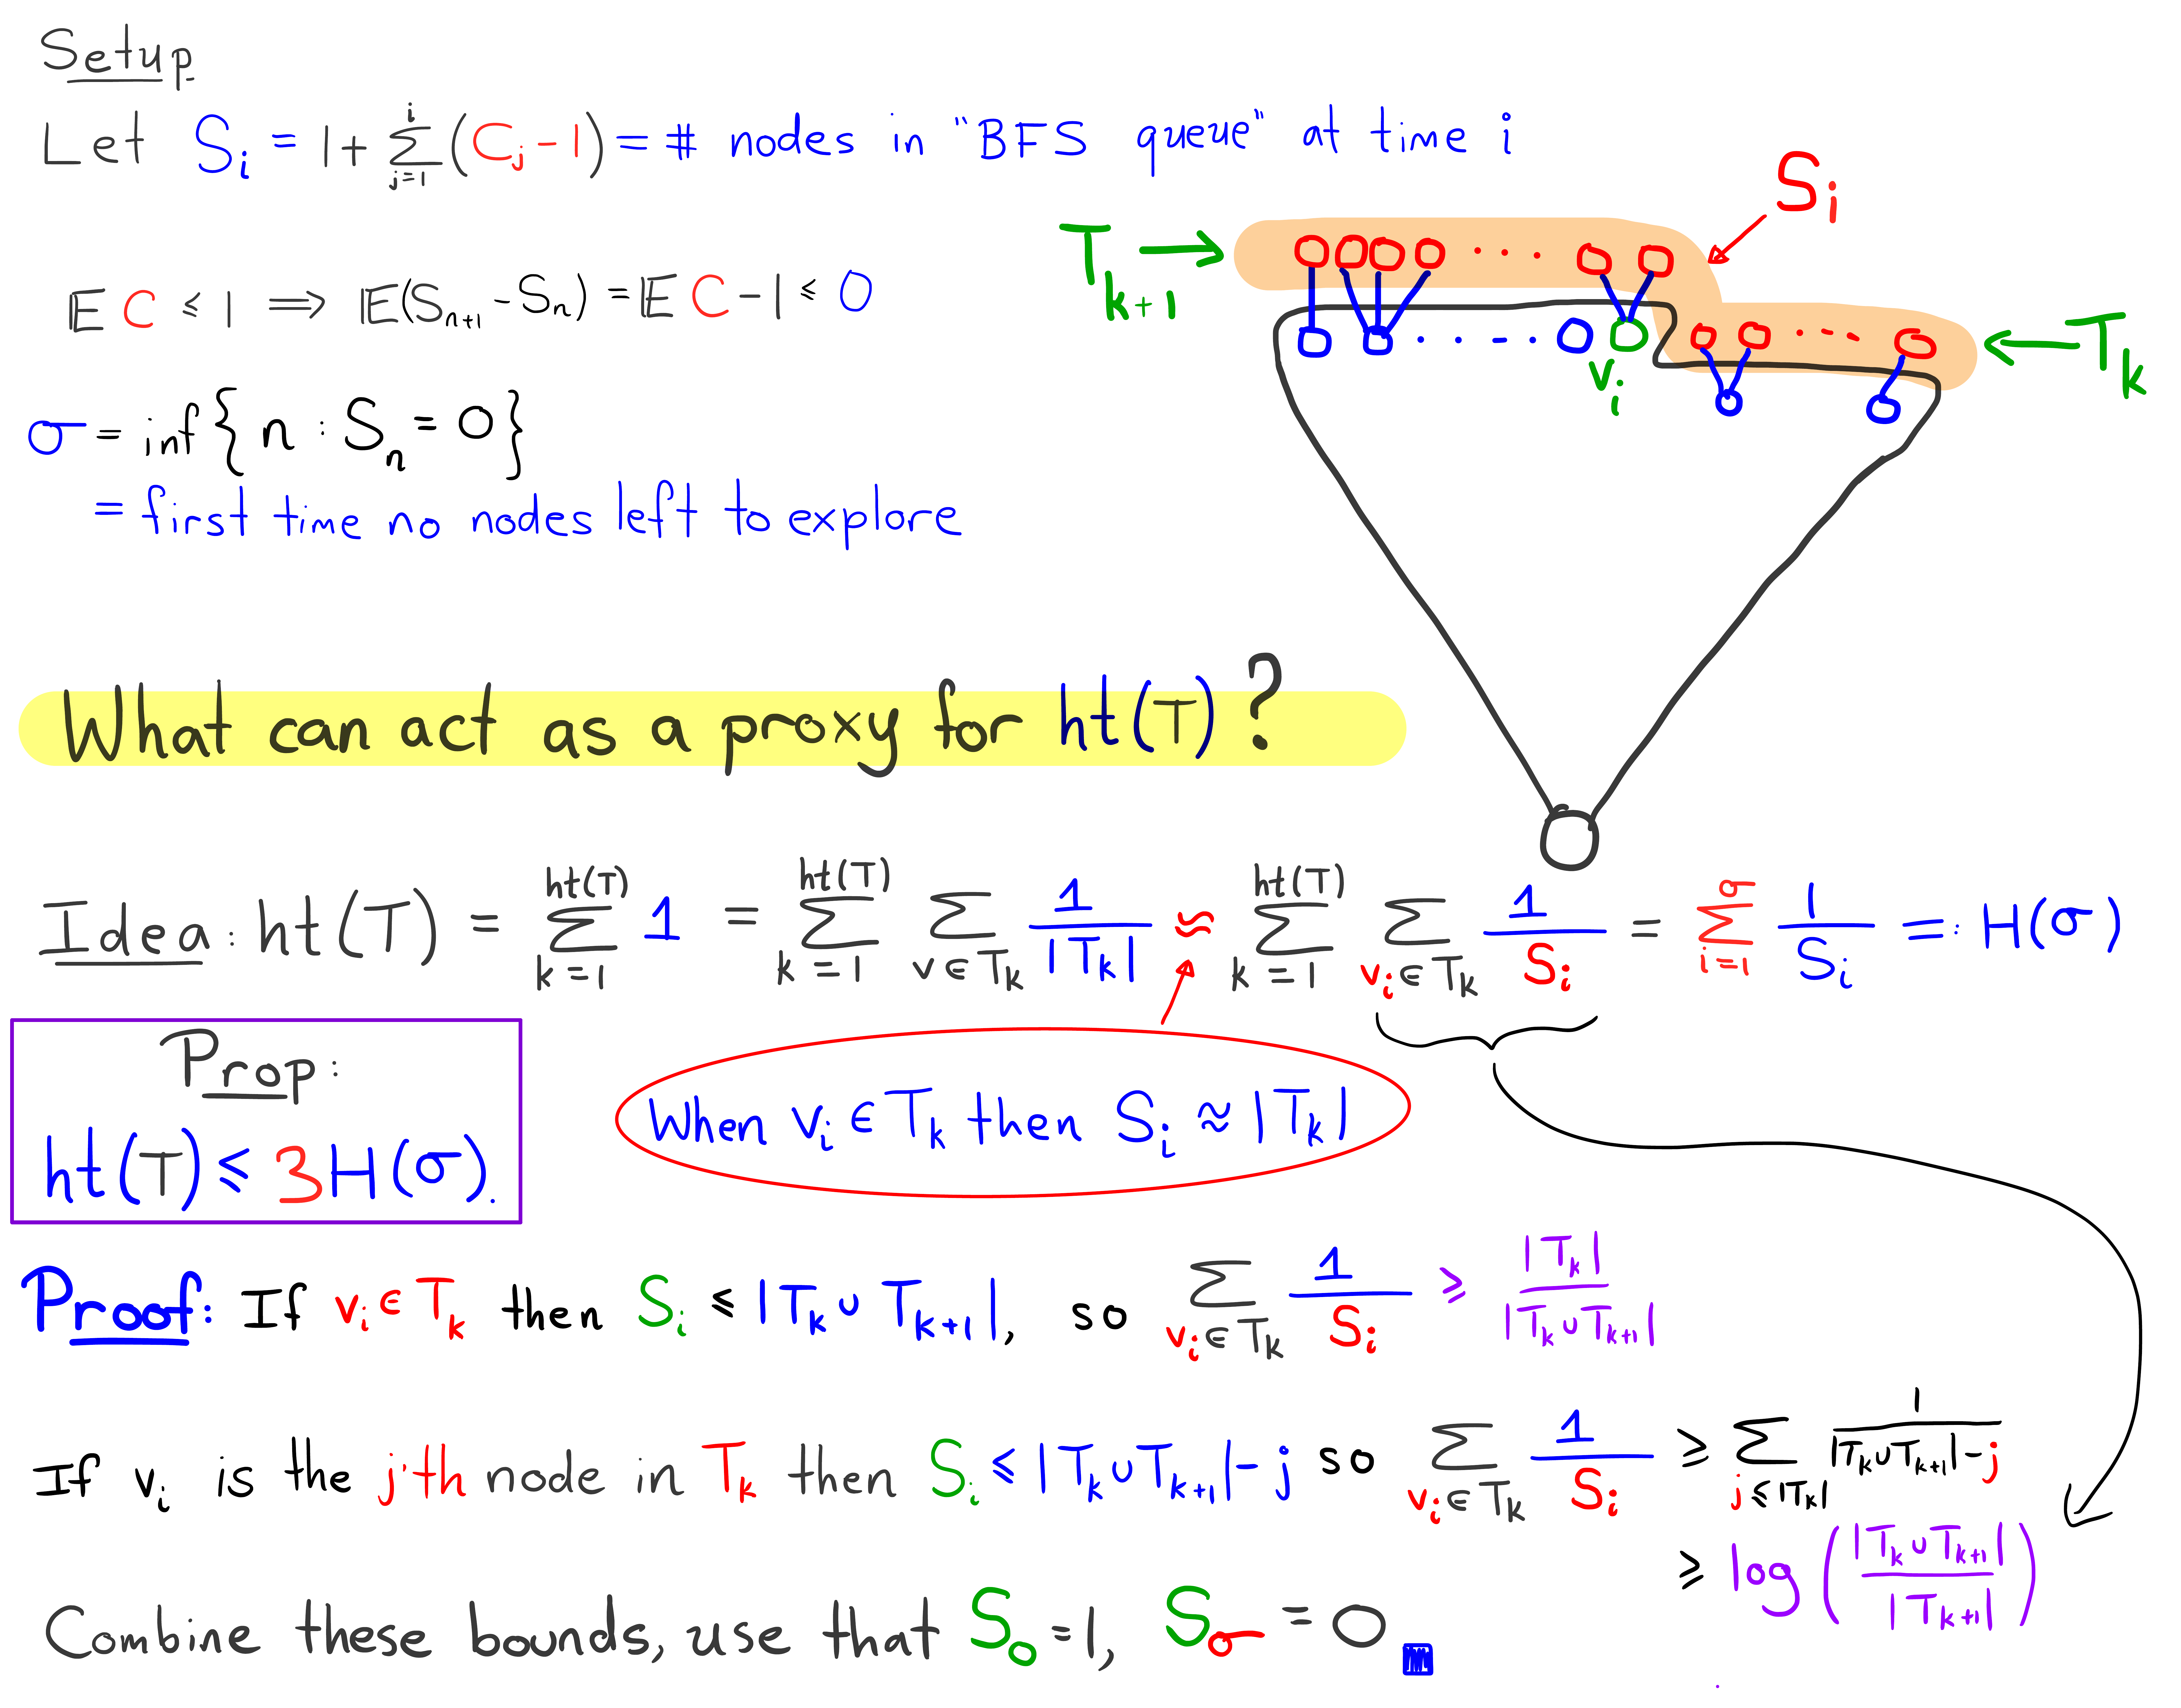 Setup
Let S_i = 1 + ∑_{j=1}^{i} (C_j − 1) = # nodes in "BFS queue" at time i
S_i
T_{k+1} →
E C ≤ 1 ⟹ E(S_{n+1} − S_n) = E C − 1 ≤ 0
← T_k
v_i
σ = inf{n : S_n = 0}
= first time no nodes left to explore
What can act as a proxy for ht(T)?
Idea: ht(T) = ∑_{k=1}^{ht(T)} 1 = ∑_{k=1}^{ht(T)} ∑_{v∈T_k} 1/|T_k| ≈ ∑_{k=1}^{ht(T)} ∑_{v_i∈T_k} 1/S_i = ∑_{i=1}^{σ} 1/S_i =: H(σ)
Prop:
ht(T) ≤ 3H(σ).
When v_i ∈ T_k then S_i ≈ |T_k|
Proof: If v_i ∈ T_k then S_i ≤ |T_k ∪ T_{k+1}|, so ∑_{v_i∈T_k} 1/S_i ≥ |T_k|/|T_k ∪ T_{k+1}|
If v_i is the j'th node in T_k then S_i ≤ |T_k ∪ T_{k+1}| − j so ∑_{v_i∈T_k} 1/S_i ≥ ∑_{j≤|T_k|} 1/(|T_k ∪ T_{k+1}| − j)
≥ log(|T_k ∪ T_{k+1}|/|T_{k+1}|)
Combine these bounds, use that S_0 = 1, S_σ = 0